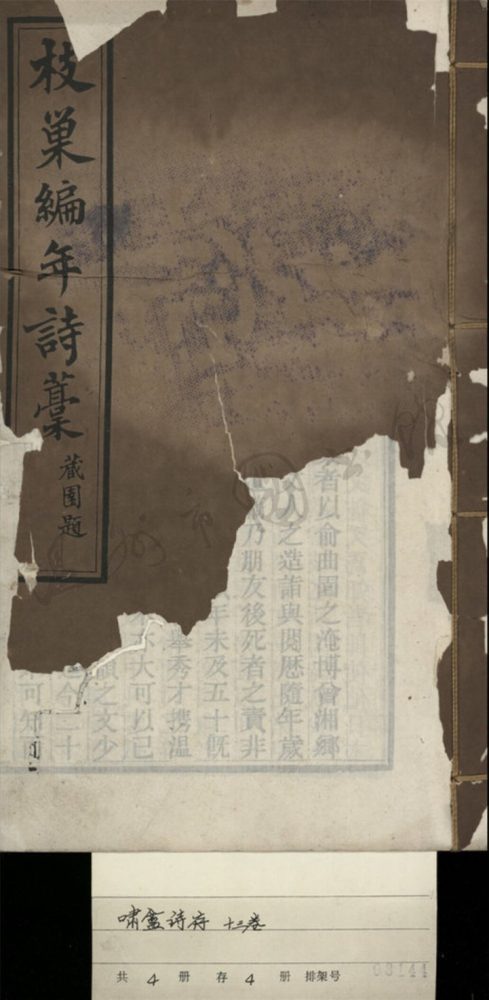 枝巢編年詩藁
藏園題
者以俞曲園之淹博曾湘鄉
人之造詣與閱歷隨年歲
乃朋友後死者之責非
年未及五十既
舉秀才携溫
大可以已
韻之文少
今二十
可知
嘯盦詩存 十三卷
共 4 册 存 4 册 排架号 03144